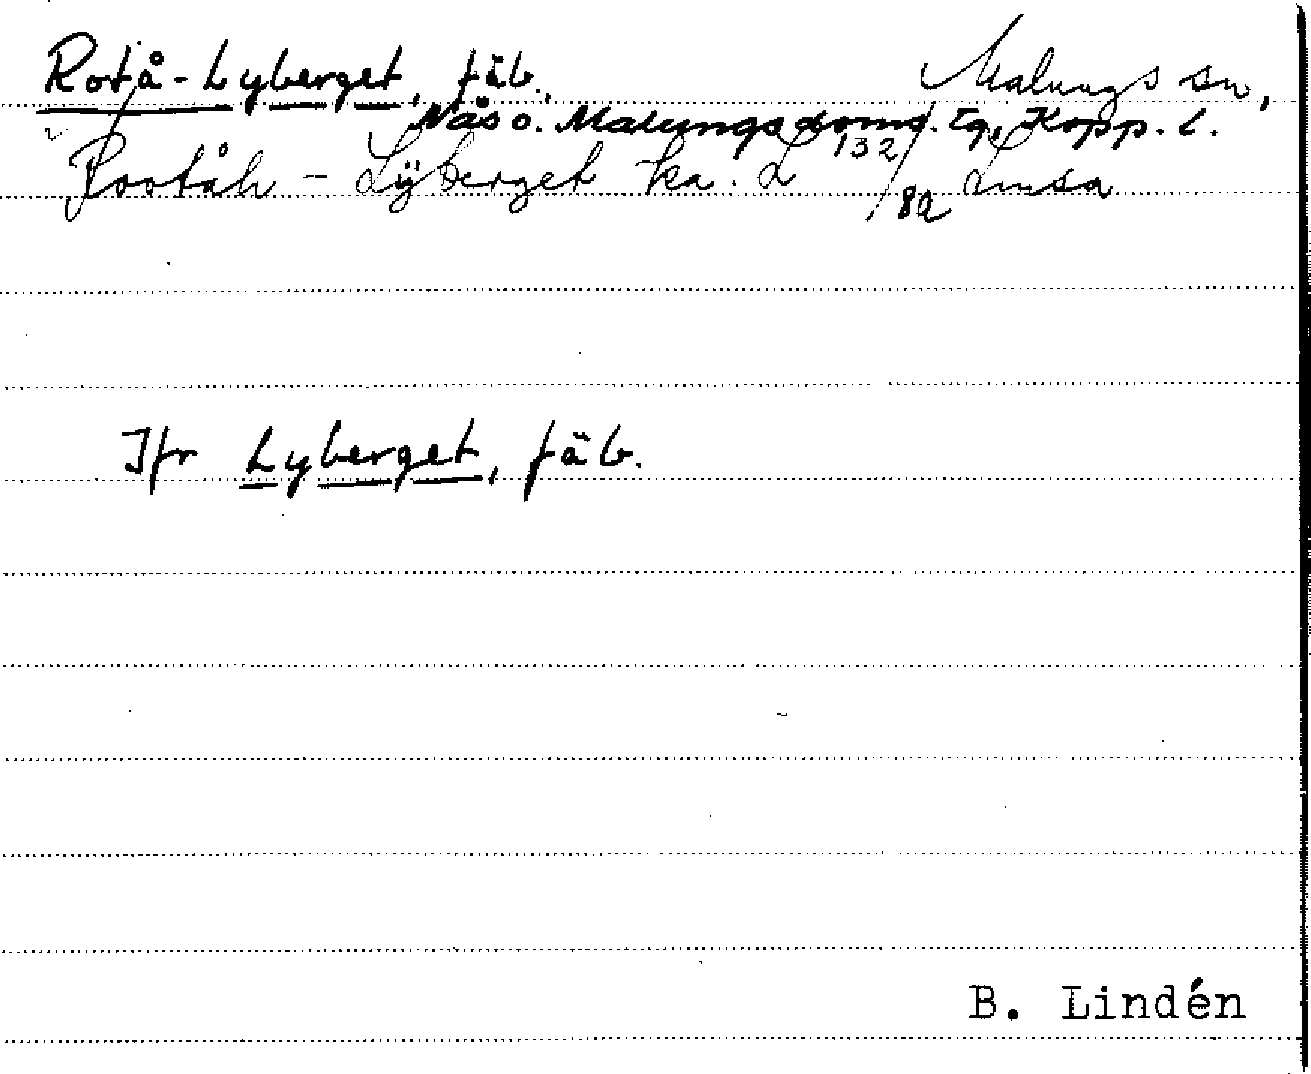 Rotå-Lyberget, fäb., Malungs sn,
Näs o. Malungs doms. tg, Kopp. l.
Roståh - Lÿberget ka. L 132/82 Limsa
Jfr Lyberget, fäb.
B. Lindén